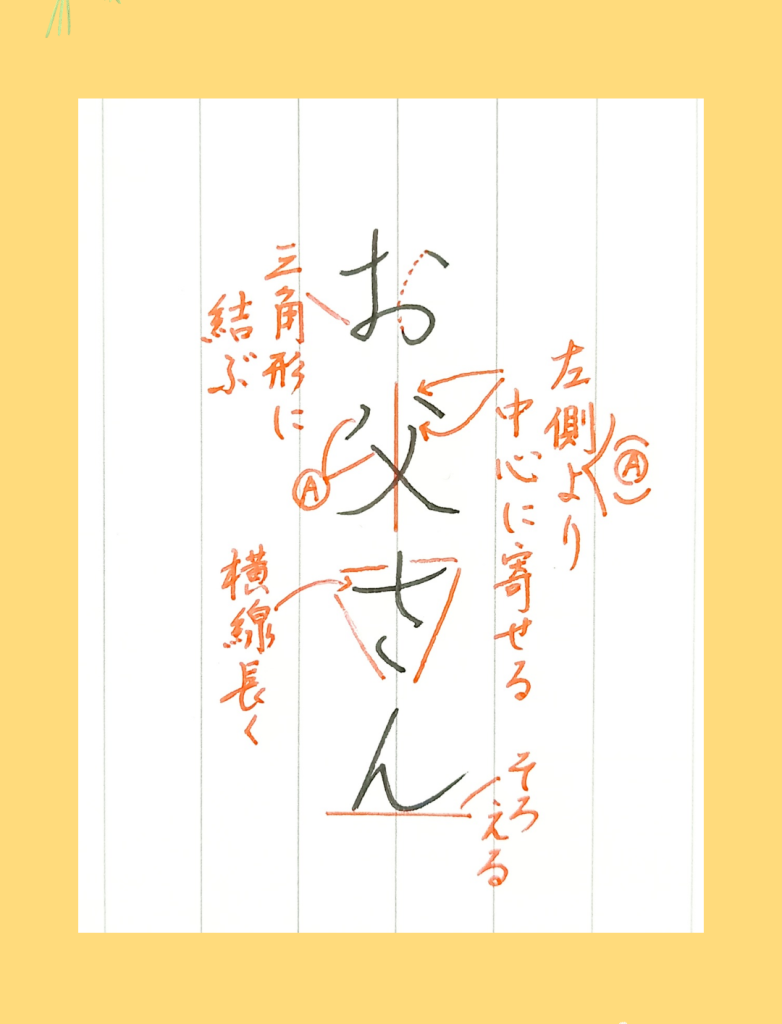 左側より
(Ⓐ)
中心に寄せる
そろ
える
お父さん
Ⓐ
三角形に
結ぶ
横線長く